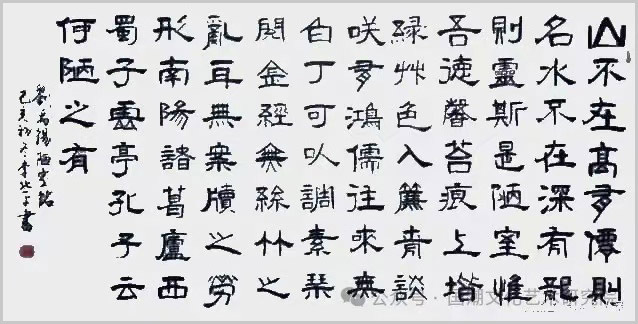 山不在高有僊則
名水不在深有龍
則靈斯是陋室惟
吾德馨苔痕上堦
綠艸色入簾青談
咲有鴻儒往來無
白丁可以調素琴
閱金經無絲竹之
亂耳無案牘之勞
形南陽諸葛廬西
蜀子雲亭孔子云
何陋之有
劉禹錫陋室銘
己亥初冬李書
公众号 · 国潮文化艺术研究院